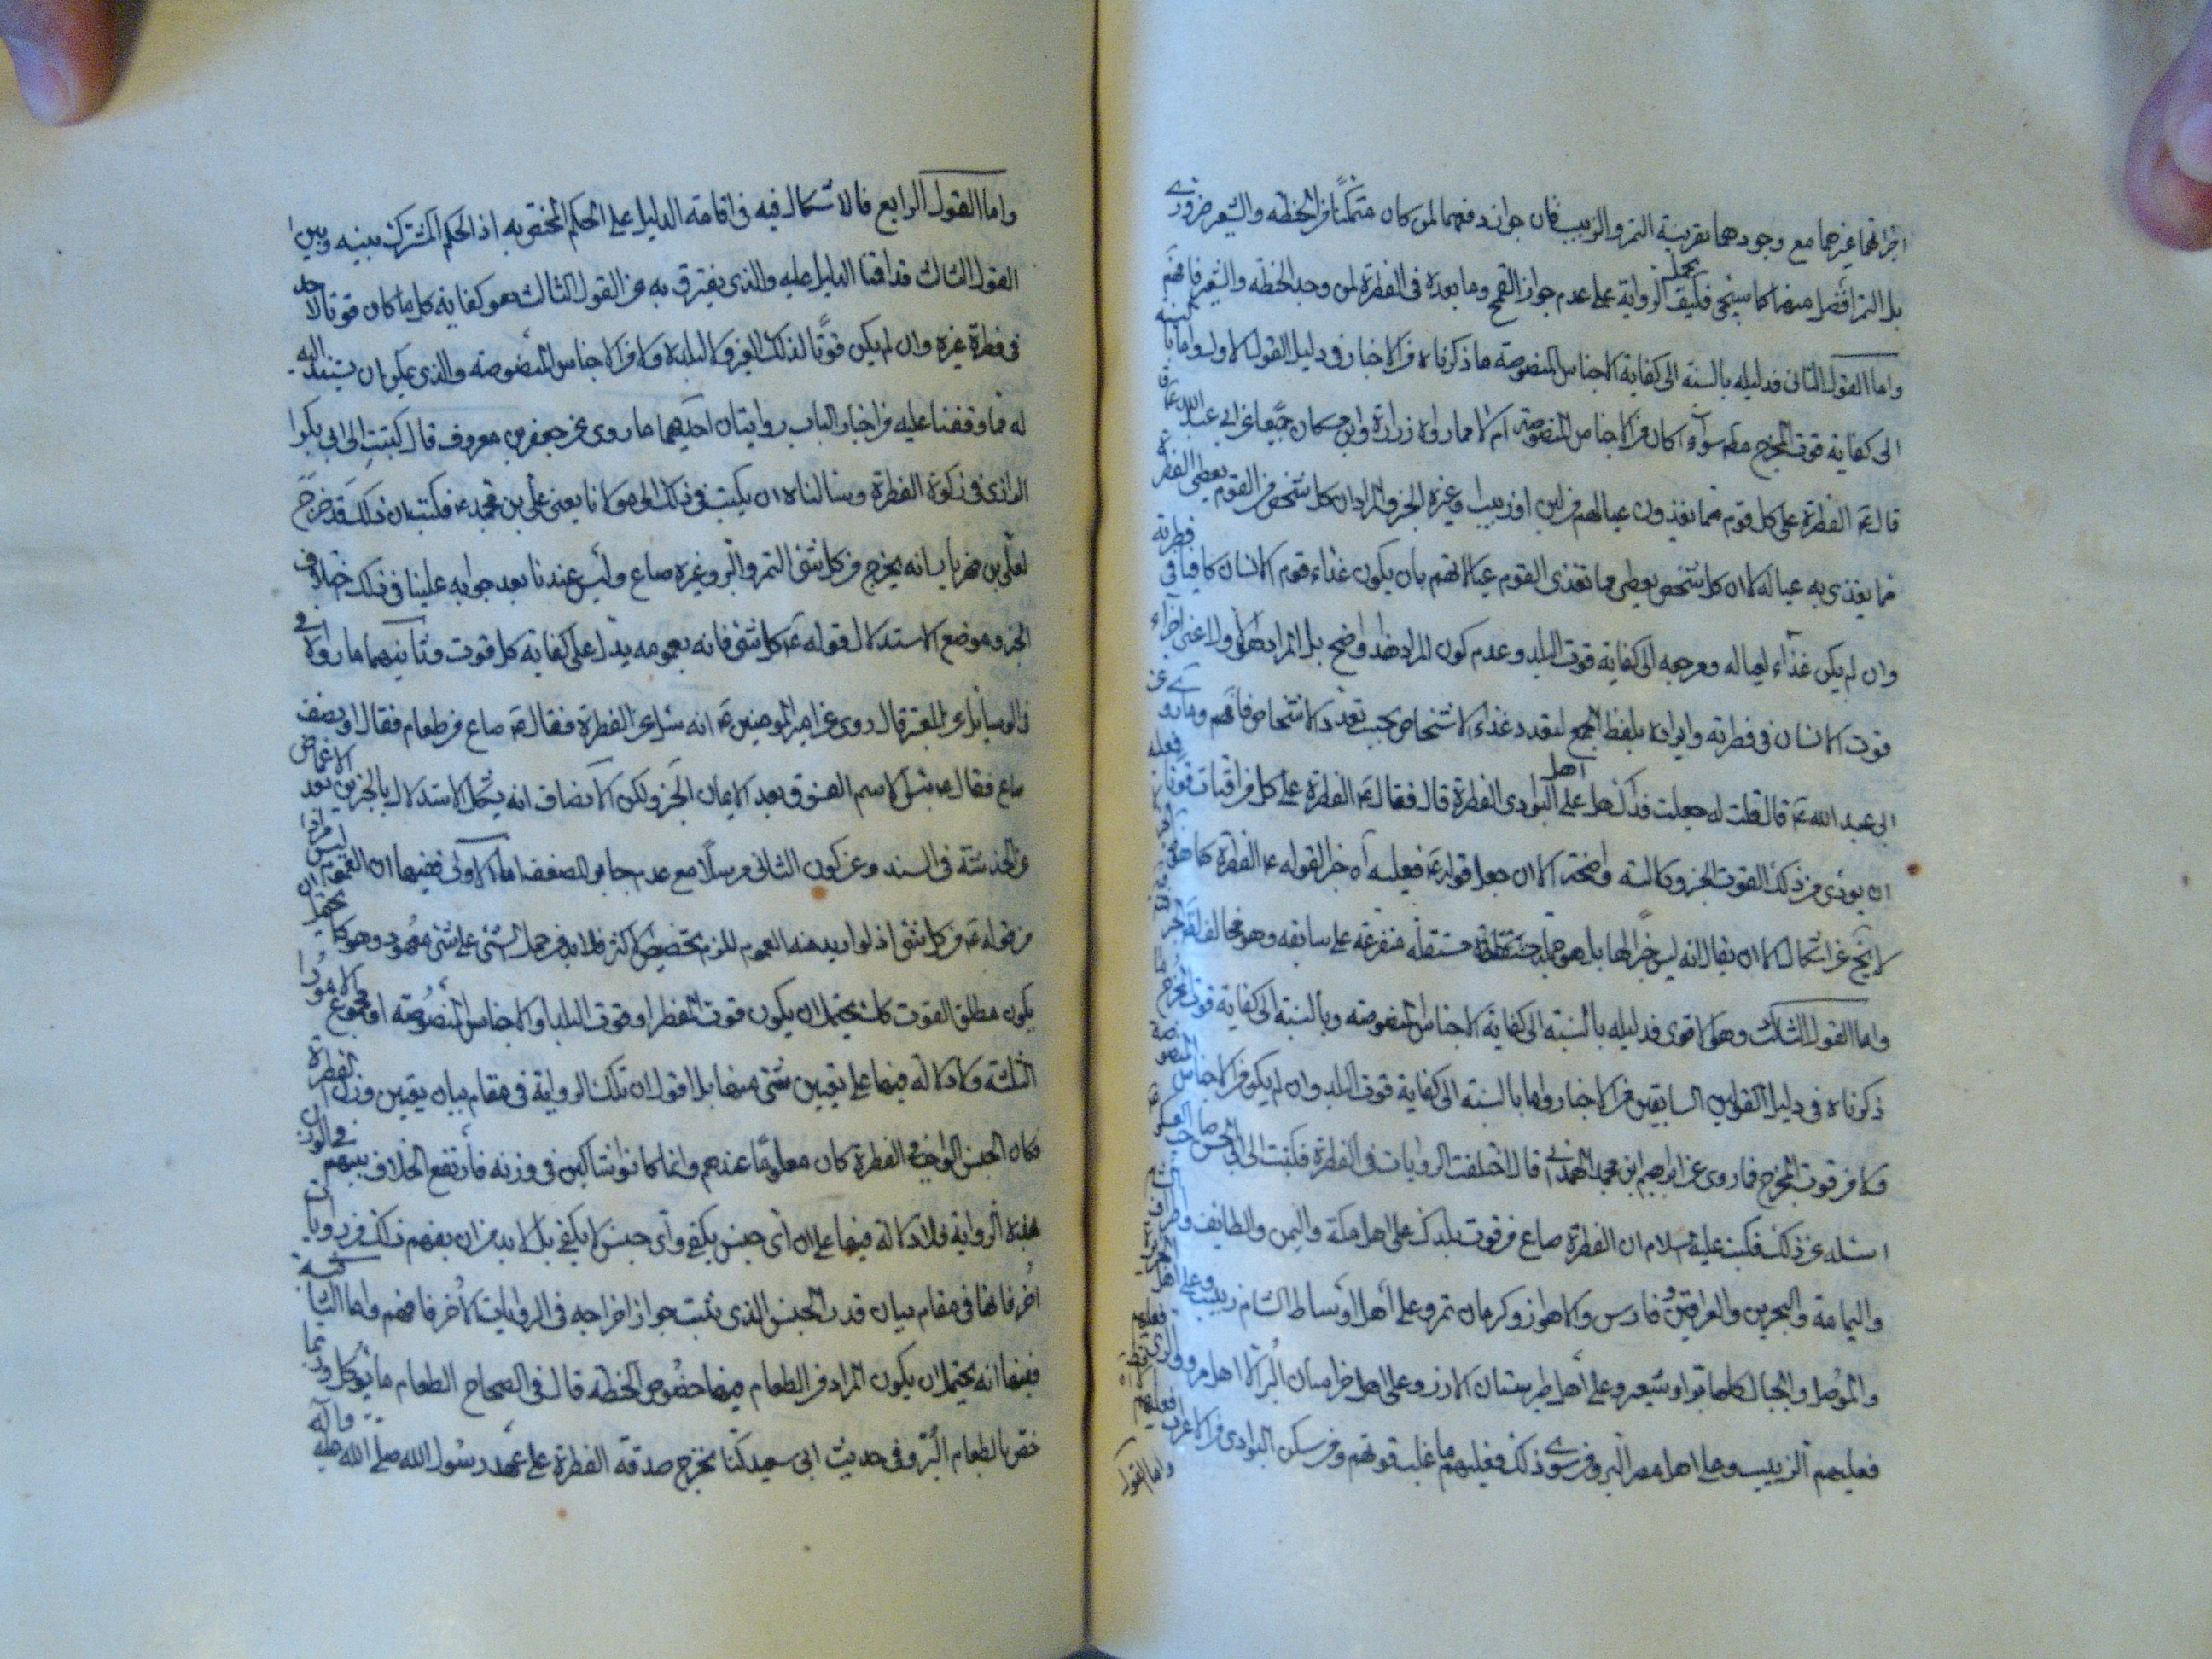 اجزائهما غيرهما مع وجودهما بقرينة التمر والزبيب فان جواز دفعهما لمن كان متمكنا من الحنطة والشعير ضروري
بل التمر افضل منهما كما سيجئ فكيف يحمل الرواية على عدم جواز القمح وما بعده في الفطرة لمن وجد الحنطة والشعير فافهم
واما القول الثاني فدليله بالنسبة الى كفاية الاجناس المنصوصة ما ذكرناه من الاخبار في دليل القول الاول واما بالنسبة
الى كفاية قوت المخرج مطم سواء كان من الاجناس المنصوصة ام لا فما رواه زرارة وابن مسكان جميعا عن ابي عبد الله ع
قال ع الفطرة على كل قوم مما يغذون عيالهم من لبن او زبيب او غيره الخبر والمراد ان كل شخص من القوم يعطى الفطرة
مما يغذى به عياله لا ان كل شخص يعطى مما تغذى القوم عيالاتهم بان يكون غذاء قوم الانسان كافيا في فطرته
وان لم يكن غذاء لعياله ومرجعه الى كفاية قوت البلد وعدم كون المراد هذا واضح بل المراد هو الاول اعنى اجزاء
قوت الانسان في فطرته وايراده بلفظ الجمع لتعدد غذاء الاشخاص بحسب تعدد الاشخاص فافهم وما روى عن
ابي عبد الله ع قال قلت له جعلت فداك هل على اهل البوادى الفطرة قال فقال ع الفطرة على كل من اقتات قوتا فعليه
ان يؤدى من ذلك القوت الخبر ودلالته واضحة الا ان جعل قوله ع فعليه اه خبرا لقوله ع الفطرة كما هو
لا يخ عن اشكال الا ان يقال انه ليس خبرا لها بل هو جملة مستقلة متفرعة على سابقه وهو مخالف
واما القول الثالث وهو الاقوى فدليله بالنسبة الى كفاية الاجناس المنصوصة وبالنسبة الى كفاية قوت المخرج ما
ذكرناه في دليل القولين السابقين من الاخبار واما بالنسبة الى كفاية قوت البلد وان لم يكن من الاجناس المنصوصة
ولا من قوت المخرج فما روى عن ابراهيم ابن محمد الهمداني قال اختلفت الروايات في الفطرة فكتبت الى ابي الحسن صاحب العسكر
اسئله عن ذلك فكتب عليه السلام ان الفطرة صاع من قوت بلدك على اهل مكة واليمن والطايف واطراف الشام
واليمامة والبحرين والعراقين وفارس والاهواز وكرمان تمر وعلى اهل اوساط الشام زبيب وعلى اهل الجزيرة
والموصل والجبال كلها بر او شعير وعلى اهل طبرستان الارز وعلى اهل خراسان البر الا اهل مرو والرى
فعليهم الزبيب وعلى اهل مصر البر ومن سوى ذلك فعليهم ما غلب قوتهم ومن سكن البوادى من الاعراب فعليهم
واما القول
واما القول الرابع فالاشكال فيه في اقامة الدليل على الحكم المختص به اذ الحكم المشترك بينه وبين
القول الثالث قد اقمنا الدليل عليه والذى يفترق به عن القول الثالث هو كفاية كل ما كان قوتا لاحد
في فطرة غيره وان لم يكن قوتا لذلك الغير ولا لبلده ولا من الاجناس المنصوصة والذى يمكن ان يستند اليه
له مما وقفنا عليه من اخبار الباب روايتان احديهما ما روى عن جعفر بن معروف قال كتبت الى ابي بكر
الرازى في زكوة الفطرة وسالناه ان يكتب في ذلك الى مولانا يعنى على بن محمد ع فكتب ان ذلك قد خرج
لعلى بن مهزيار انه يخرج من كل شئ التمر والبر وغيره صاع وليس عندنا بعد جوابه علينا في ذلك خلاف
الخبر وموضع الاستدلال قوله ع كل شئ فانه بعمومه يدل على كفاية كل قوت وثانيهما ما رواه
في الوسايل عن المعتبر قال روى عن امير المؤمنين ع انه سئل عن الفطرة فقال ع صاع من طعام فقال او نصف
صاع فقال ع بئس الاسم الفسوق بعد الايمان الخبر ولكن الانصاف انه يشكل الاستدلال بالخبرين بعد الاغماض
عن الخدشة في السند وعن كون الثاني مرسلا مع عدم جابر لضعفه اما الاولى ففيها ان العموم ليس مرادا
من قوله ع من كل شئ اذ لو اريد منه العموم للزم تخصيص الاكثر فلا بد من حمل الشئ على شئ معهود وهو كما يحتمل ان
يكون مطلق القوت كك يحتمل ان يكون قوت المفطر او قوت البلد او الاجناس المنصوصة او مجموع الامور
الثلثة ولا دلالة فيها على تعيين شئ منها بل اقول ان تلك الرواية في مقام بيان تعيين وزن الفطرة
فكان الجنس الواجب في الفطرة كان معلوما عندهم وانما كانوا شاكين في وزنه فارتفع الخلاف بينهم في الوزن
هذه الرواية فلا دلالة فيها على ان اى جنس يكفى واى جنس لا يكفى بل لا بد من ان يفهم ذلك من روايات
اخر فانها في مقام بيان قدر الجنس الذى يثبت جواز اخراجه في الروايات الاخر فافهم واما الثانية
ففيها انه يحتمل ان يكون المراد من الطعام فيها خصوص الحنطة قال في الصحاح الطعام ما يؤكل وربما
خص بالطعام البر وفي حديث ابي سعيد كنا نخرج صدقة الفطرة على عهد رسول الله صلى الله عليه واله